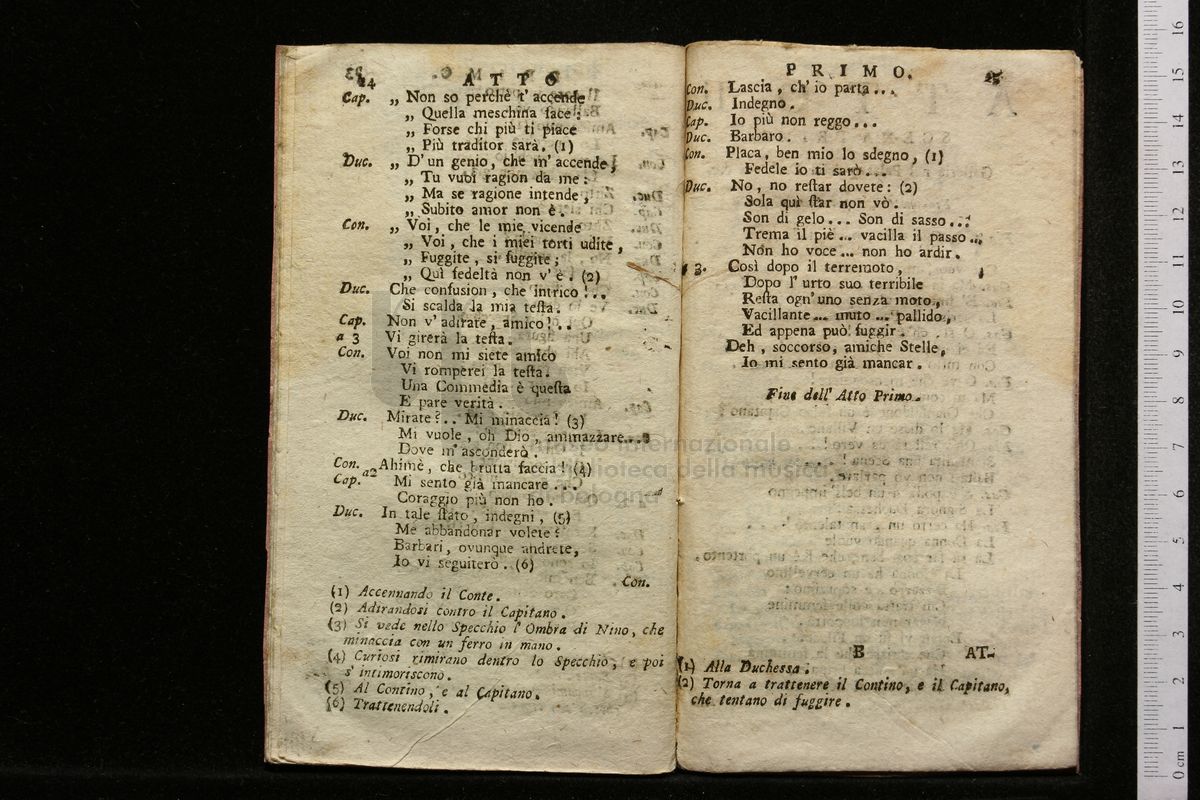 24 ATTO
Cap. „ Non so perchè t' accende
„ Quella meschina face:
„ Forse chi più ti piace
„ Più traditor sarà. (1)
Duc. „ D' un genio, che m' accende,
„ Tu vuoi ragion da me:
„ Ma se ragione intende,
„ Subito amor non è.
Con. „ Voi, che le mie vicende
„ Voi, che i miei torti udite,
„ Fuggite, si fuggite;
„ Quì fedeltà non v' è. (2)
Duc. Che confusion, che intrico!..
Si scalda la mia testa.
Cap. Non v' adirate, amico!..
a 3 Vi girerà la testa.
Con. Voi non mi siete amico
Vi romperei la testa.
Una Commedia è questa
E pare verità.
Duc. Mirate?.. Mi minaccia! (3)
Mi vuole, oh Dio, ammazzare...
Dove m' asconderò.
Con. a2 Ahimè, che brutta faccia! (4)
Cap. Mi sento già mancare...
Coraggio più non ho.
Duc. In tale stato, indegni, (5)
Me abbandonar volete?
Barbari, ovunque andrete,
Io vi seguiterò. (6)
Con.
(1) Accennando il Conte.
(2) Adirandosi contro il Capitano.
(3) Si vede nello Specchio l' Ombra di Nino, che
minaccia con un ferro in mano.
(4) Curiosi rimirano dentro lo Specchio, e poi
s' intimoriscono.
(5) Al Contino, e al Capitano.
(6) Trattenendoli.
PRIMO. 25
Con. Lascia, ch' io parta...
Duc. Indegno.
Cap. Io più non reggo...
Duc. Barbaro.
Con. Placa, ben mio lo sdegno, (1)
Fedele io ti sarò...
Duc. No, no restar dovete: (2)
Sola quì star non vò.
Son di gelo... Son di sasso...
Trema il piè... vacilla il passo...
Non ho voce... non ho ardir.
a 3. Così dopo il terremoto,
Dopo l' urto suo terribile
Resta ogn' uno senza moto,
Vacillante... muto... pallido,
Ed appena può fuggir.
Deh, soccorso, amiche Stelle,
Io mi sento già mancar.
Fine dell' Atto Primo.
B AT-
(1) Alla Duchessa.
(2) Torna a trattenere il Contino, e il Capitano,
che tentano di fuggire.
museo internazionale
e biblioteca della musica
di bologna
0 cm 1 2 3 4 5 6 7 8 9 10 11 12 13 14 15 16